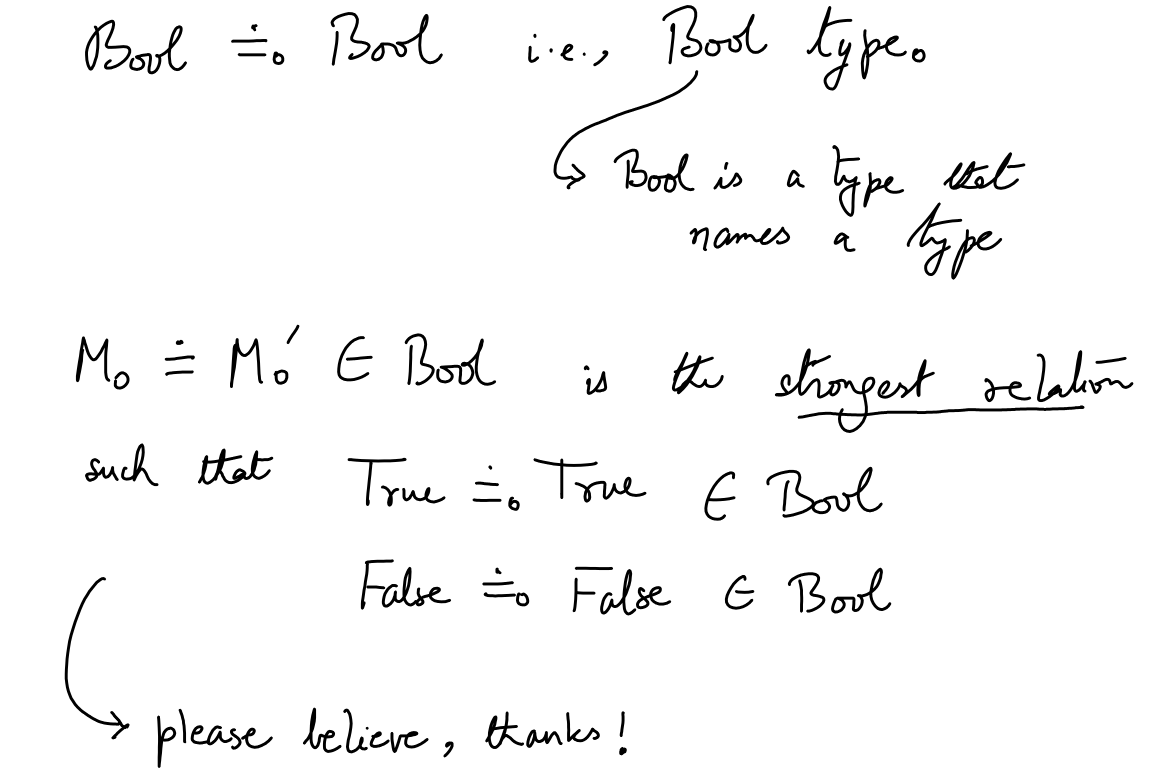 Bool ≐₀ Bool i.e., Bool type₀
Bool is a type that
names a type
M₀ ≐ M₀′ ∈ Bool is the strongest relation
such that True ≐₀ True ∈ Bool
False ≐₀ False ∈ Bool
please believe, thanks!